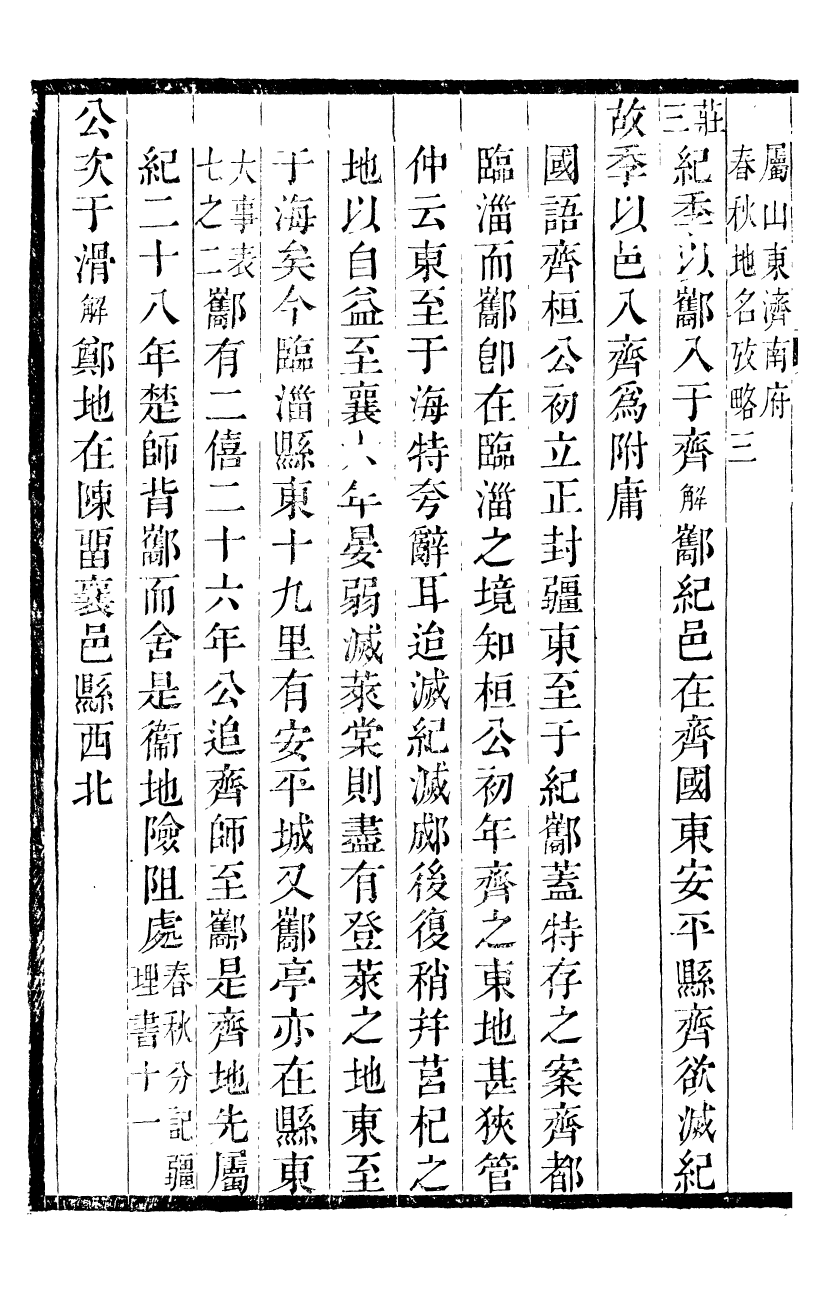 屬山東濟南府
春秋地名攷略三
莊三紀季以酅入于齊解酅紀邑在齊國東安平縣齊欲滅紀
故季以邑入齊爲附庸
國語齊桓公初立正封疆東至于紀酅蓋特存之案齊都
臨淄而酅卽在臨淄之境知桓公初年齊之東地甚狹管
仲云東至于海特夸辭耳迨滅紀滅郕後復稍幷莒杞之
地以自益至襄六年晏弱滅萊棠則盡有登萊之地東至
于海矣今臨淄縣東十九里有安平城又酅亭亦在縣東
大事表
七之二酅有二僖二十六年公追齊師至酅是齊地先屬
紀二十八年楚師背酅而舍是衞地險阻處春秋分記疆
理書十一
公次于滑解鄭地在陳畱襄邑縣西北